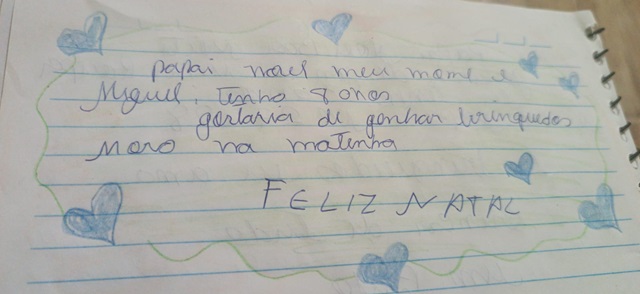 papai noel meu nome e
Miguel, tenho 8 anos
gostaria de ganhar brinquedos
moro na matinha
FELIZ NATAL